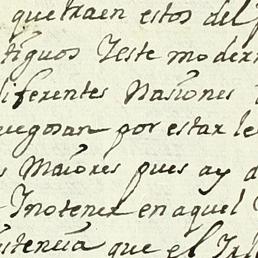 que traen estos del
tiguos Y este moder
iferentes Nasiones
uegosan por estar le
s Maiores pues ay d
Ino tener en aquel
istencia que el Irl